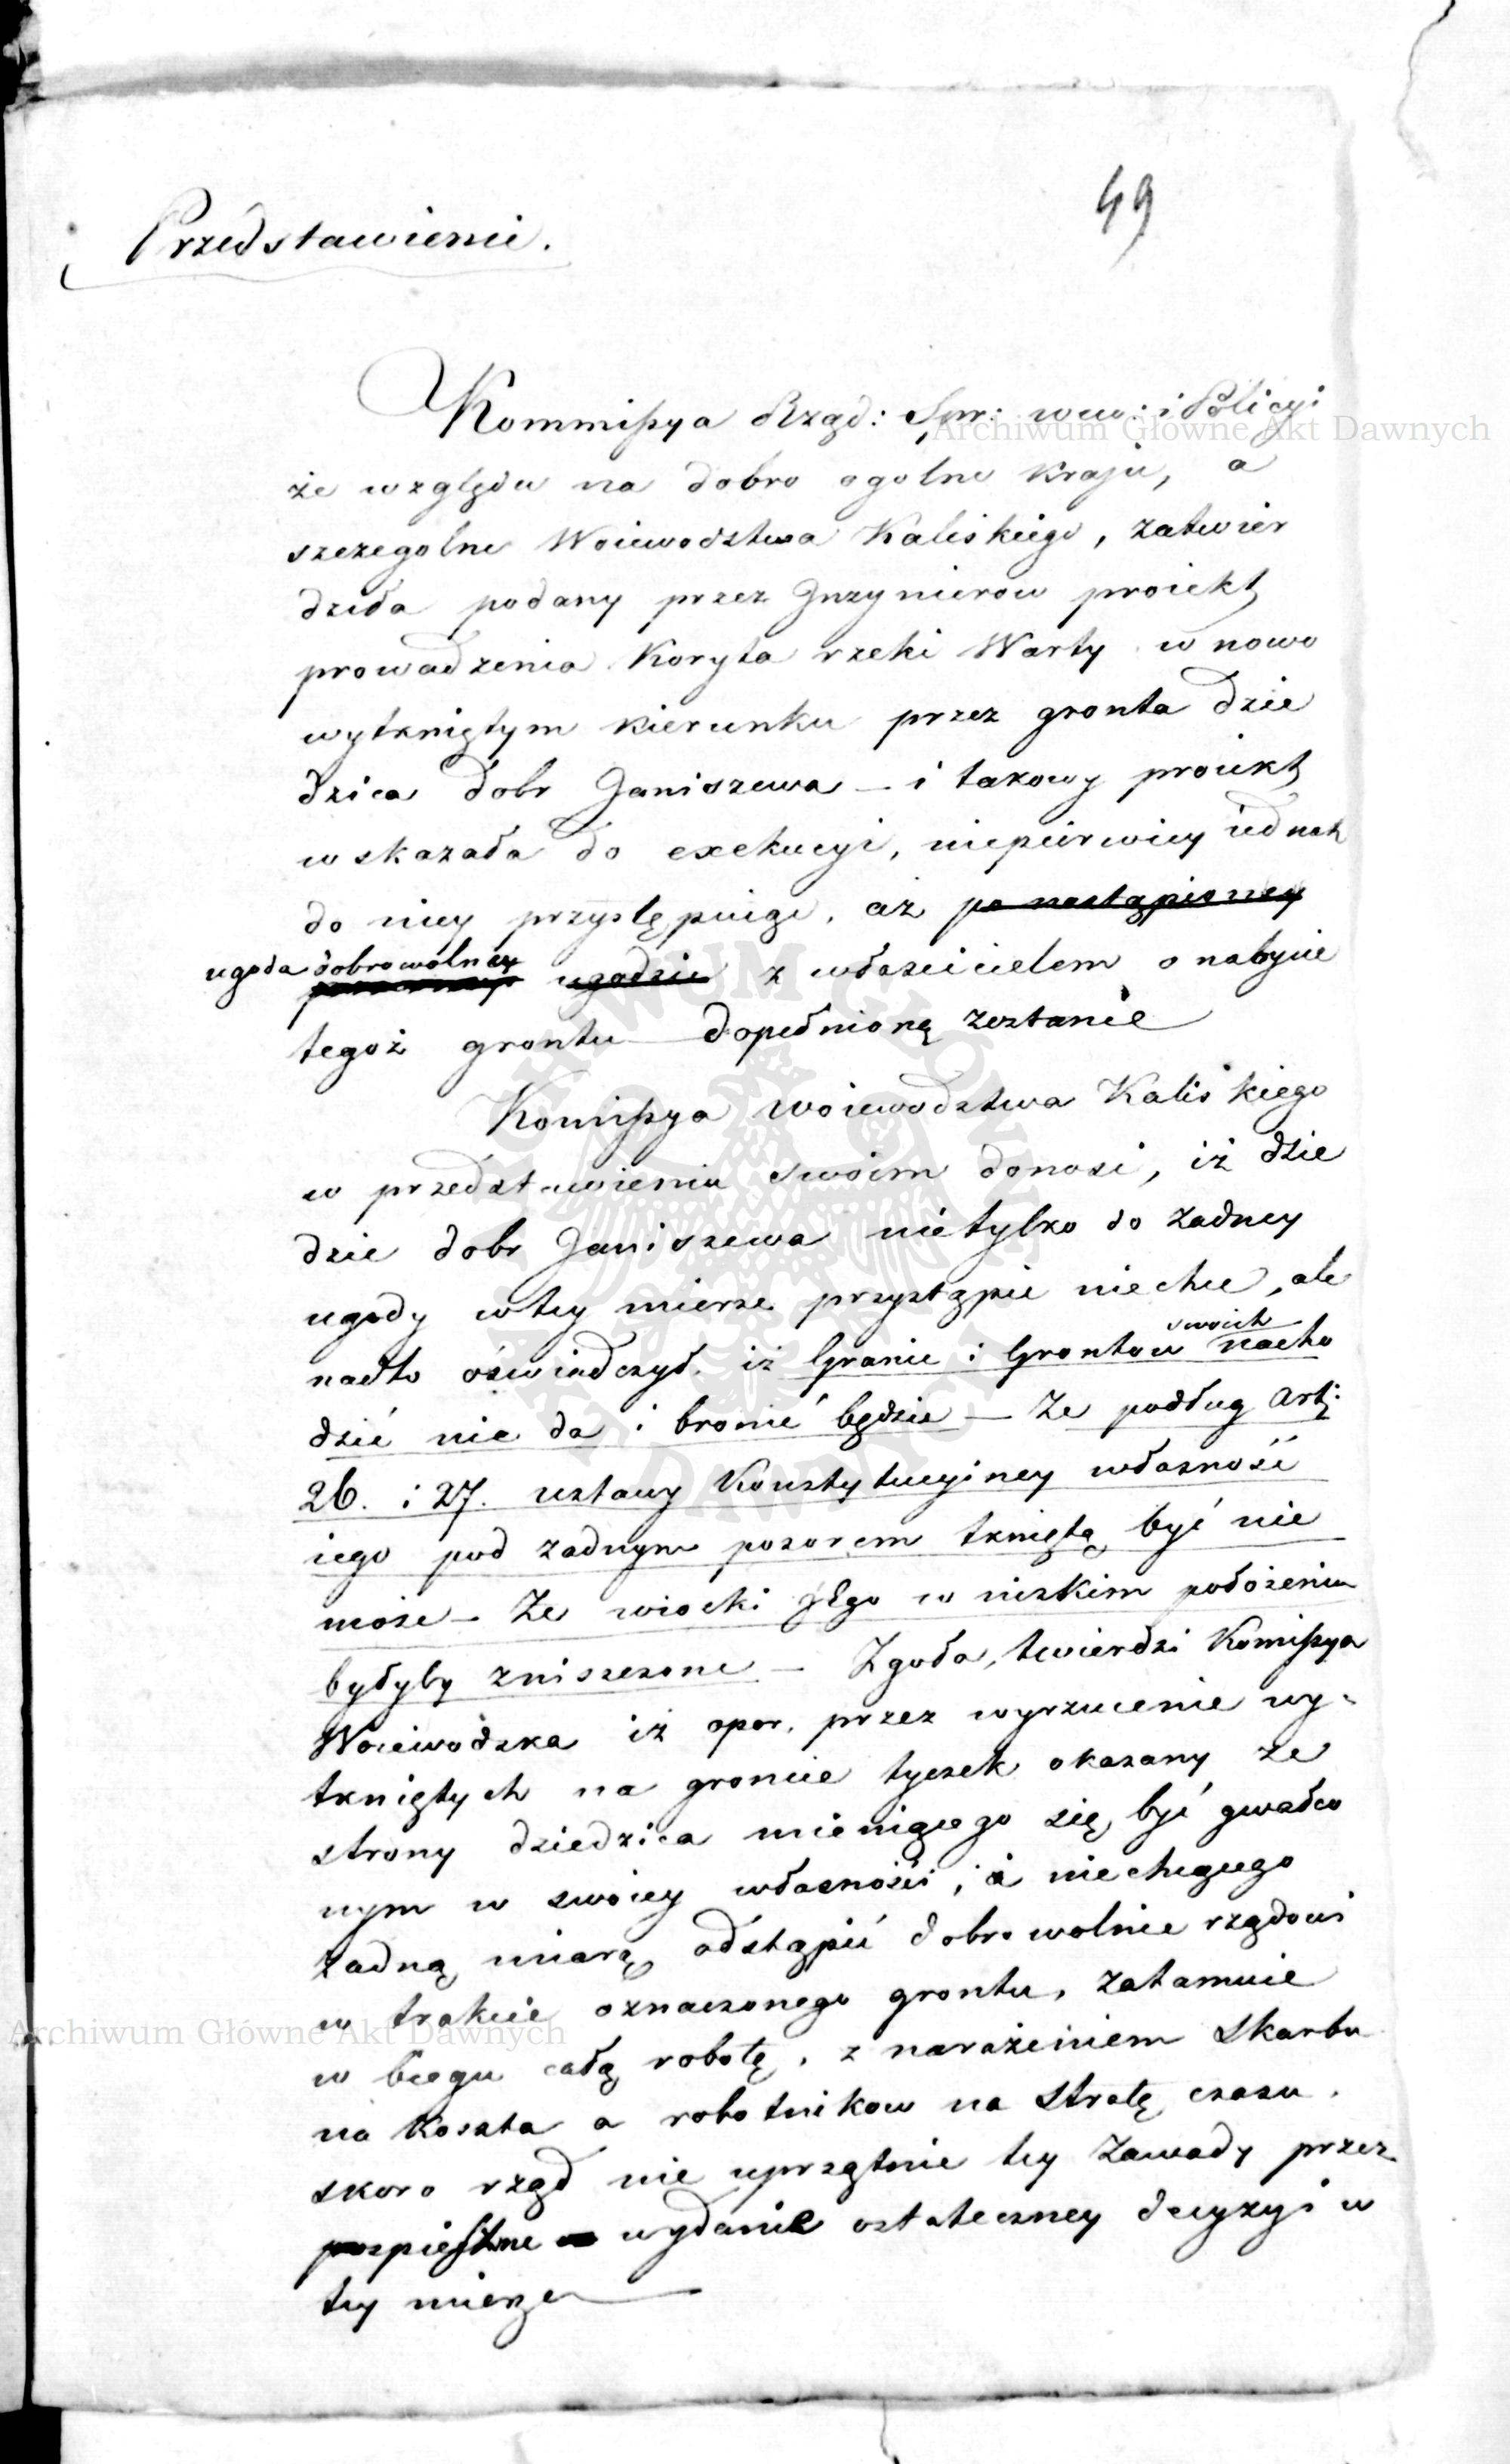 49
Przedstawienie.
Kommissya Rząd: Spr: wew: i Policyi
że względu na dobro ogolne kraju, a
szczegolne Woiewodztwa Kaliskiego, zatwier
dziła podany przez Inżynierow proiekt
prowadzenia Koryta rzeki Warty w nowo
wytkniętym kierunku przez gronta dzie
dzica dobr Janiszewa – i takowy proiekt
wskazała do exekucyi, niepierwiey iednak
do niey przystępuiąc, aż po nastąpioney
ugoda dobrowolney ugodzie z właścicielem o nabycie
tegoż grontu dopełnioną zostanie
Komissya Woiewodztwa Kaliskiego
w przedstawieniu swoim donosi, iż dzie
dzic dobr Janiszewa nietylko do żadney
ugody w tey mierze przystąpić niechce, ale
nadto oświadczył, iż Granic i Grontow swoich nacho
dzić nie da i bronić będzie – Że podług Art:
26. i 27. ustawy Konstytucyiney własność
iego pod żadnym pozorem tkniętą być nie
może – Że wioski Jego w niskim położeniu
byłyby zniszczone – Zgoła, twierdzi Komissya
Woiewodzka iż opor, przez wyrzucenie wy-
tkniętych na groncie tyczek okazany ze
strony dziedzica mieniącego się być gwałco
nym w swoiey własności, a niechcącego
żadną miarą odstąpić dobrowolnie rządowi
w trakcie oznaczonego grontu, zatamuie
w biegu całą robotę, z narażeniem Skarbu
na Koszta a robotnikow na Stratę czasu,
skoro rząd nie uprzątnie tey Zawady przez
pospieszne wydanie ostateczney decyzyi w
tey mierze
Archiwum Główne Akt Dawnych
Archiwum Główne Akt Dawnych
ARCHIWUM GŁÓWNE AKT DAWNYCH